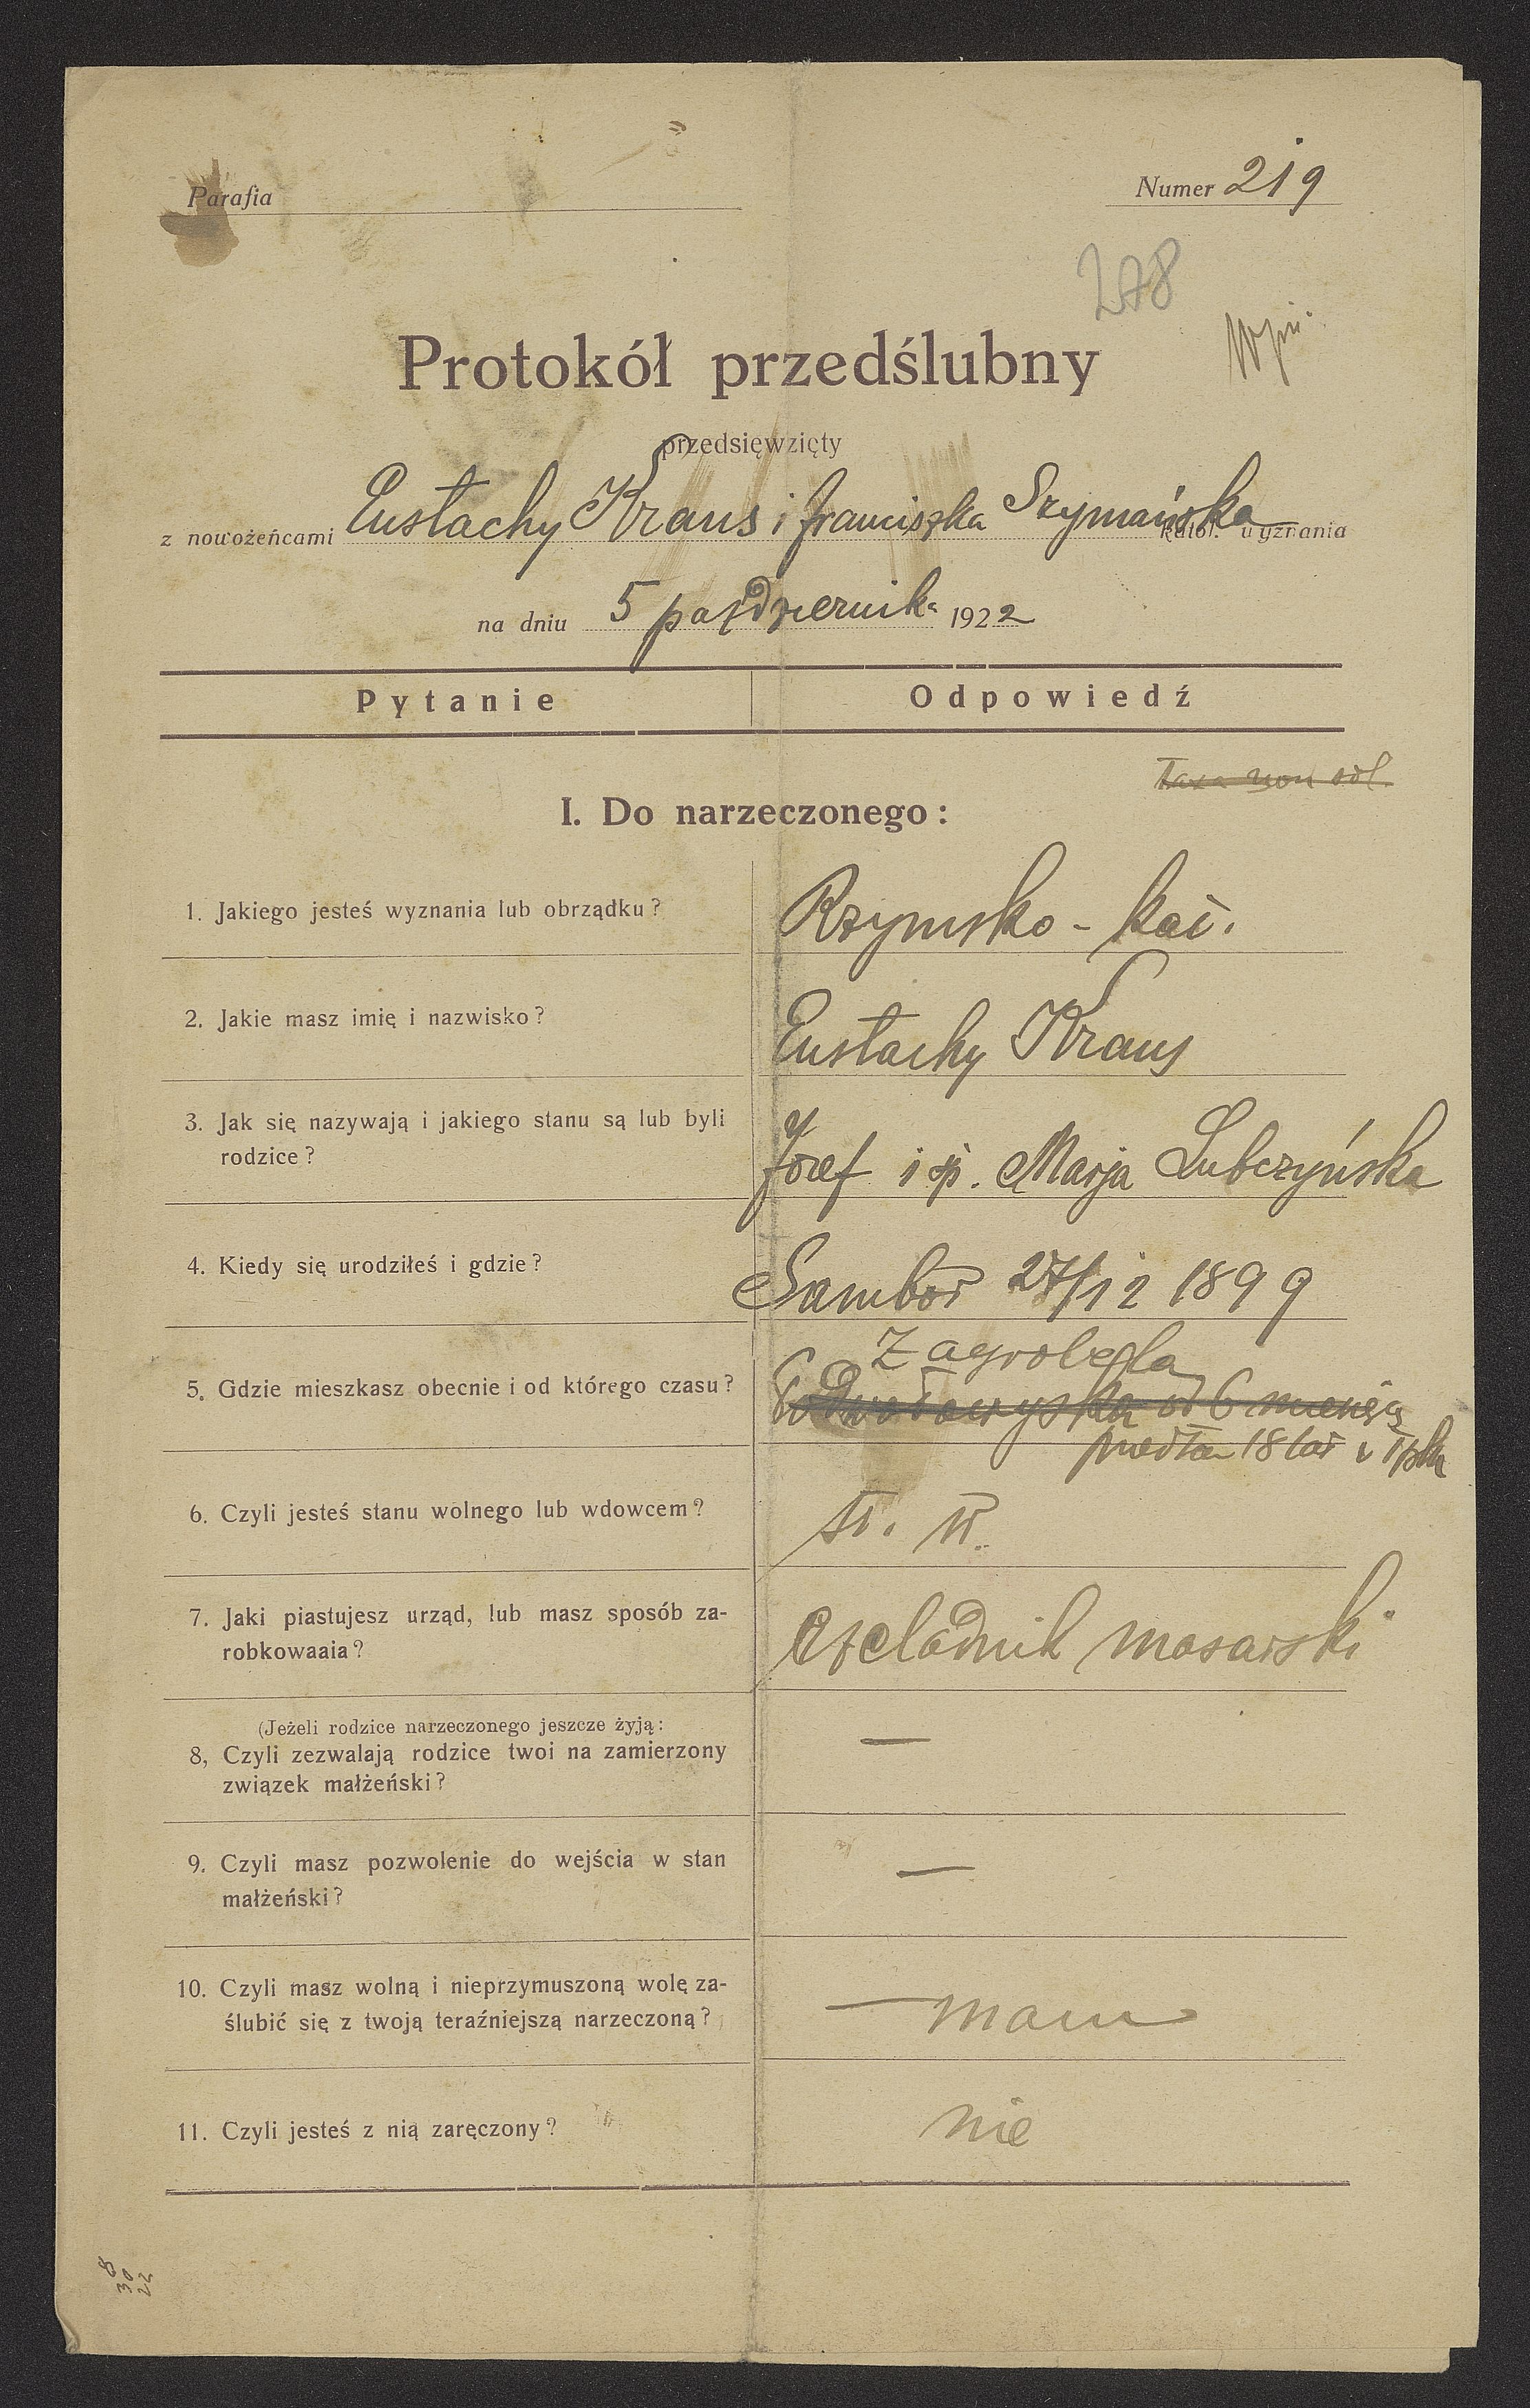 Parafia
Numer 219
278
Protokół przedślubny
przedsięwzięty
z nowożeńcami Eustachy Kraus i Franciszka Szymańska katol. wyznania
na dniu 5 październik 1922
Pytanie Odpowiedź
Taxa non sol.
I. Do narzeczonego:
1. Jakiego jesteś wyznania lub obrządku?
Rzymsko-kat.
2. Jakie masz imię i nazwisko?
Eustachy Kraus
3. Jak się nazywają i jakiego stanu są lub byli
rodzice?
Józef i śp. Marja Lubczyńska
4. Kiedy się urodziłeś i gdzie?
Sambor 27/12 1899
Zagrobela
5. Gdzie mieszkasz obecnie i od którego czasu?
Podwołoczyska od 6 miesięcy
przedtem 18 lat w Tplu
6. Czyli jesteś stanu wolnego lub wdowcem?
st. w.
7. Jaki piastujesz urząd, lub masz sposób za-
robkowaaia?
Czeladnik masarski
(Jeżeli rodzice narzeczonego jeszcze żyją:
8, Czyli zezwalają rodzice twoi na zamierzony
związek małżeński?
—
9. Czyli masz pozwolenie do wejścia w stan
małżeński?
—
10. Czyli masz wolną i nieprzymuszoną wolę za-
ślubić się z twoją teraźniejszą narzeczoną?
— mam
11. Czyli jesteś z nią zaręczony?
nie
8
30
22